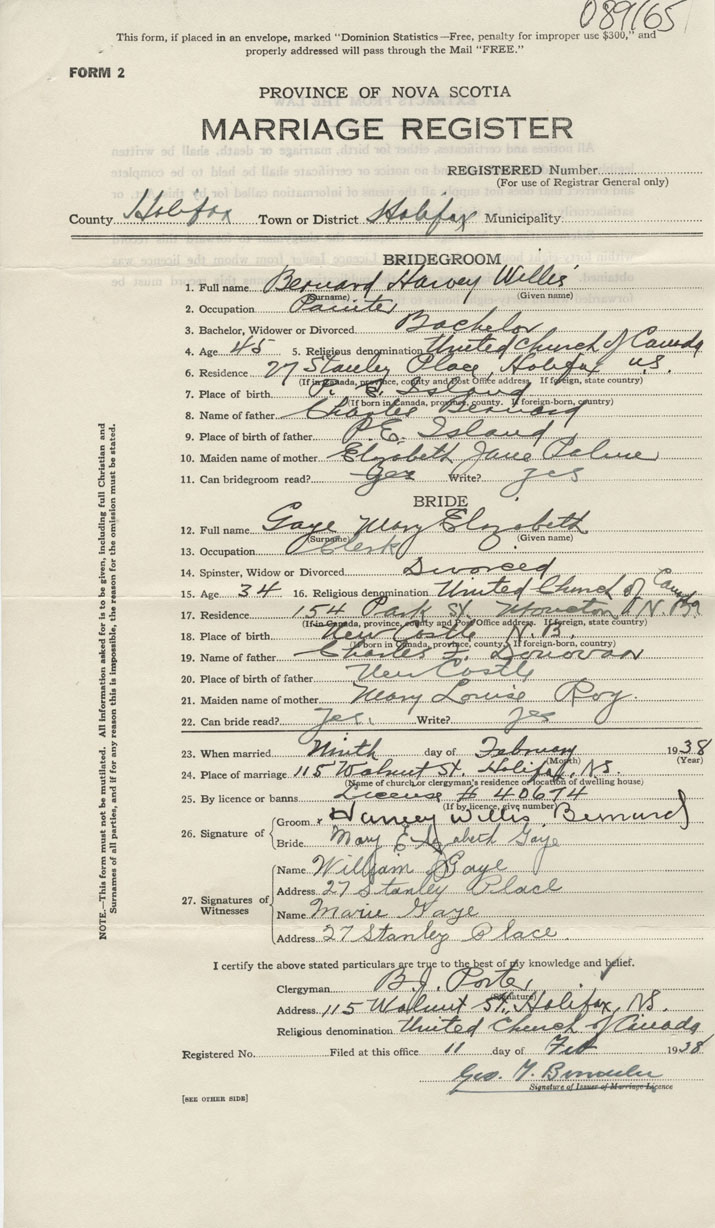 089165
This form, if placed in an envelope, marked "Dominion Statistics—Free, penalty for improper use $300," and
properly addressed will pass through the Mail "FREE."
FORM 2
PROVINCE OF NOVA SCOTIA
MARRIAGE REGISTER
REGISTERED Number
(For use of Registrar General only)
County Halifax Town or District Halifax Municipality
BRIDEGROOM
1. Full name Bernard Harvey Willis
(Surname) (Given name)
2. Occupation Painter
3. Bachelor, Widower or Divorced Bachelor
4. Age 45 5. Religious denomination United Church of Canada
6. Residence 27 Stanley Place, Halifax N.S.
(If in Canada, province, county and Post Office address. If foreign, state country)
7. Place of birth P. E. Island
(If born in Canada, province, county. If foreign-born, country)
8. Name of father Charles Bernard
9. Place of birth of father P.E. Island
10. Maiden name of mother Elizabeth Jane
11. Can bridegroom read? Yes Write? yes
BRIDE
12. Full name Gaye Mary Elizabeth
(Surname) (Given name)
13. Occupation Clerk
14. Spinster, Widow or Divorced Divorced
15. Age 34 16. Religious denomination United Church of Canada
17. Residence 154 Park St. Moncton N.B.
(If in Canada, province, county and Post Office address. If foreign, state country)
18. Place of birth New Castle N.B.
(If born in Canada, province, county. If foreign-born, country)
19. Name of father Charles F. Donovan
20. Place of birth of father New Castle
21. Maiden name of mother Mary Louise Roy.
22. Can bride read? Yes. Write? yes
23. When married Ninth day of February 1938
(Month) (Year)
24. Place of marriage 115 Walnut St. Halifax, N.S.
(Name of church or clergyman's residence or location of dwelling house)
25. By licence or banns License # 40674
(If by licence, give number)
26. Signature of
Groom x Harvey Willis Bernard
Bride Mary Elizabeth Gaye
27. Signatures of Witnesses
Name William J Gaye
Address 27 Stanley Place
Name Marie Gaye
Address 27 Stanley Place.
I certify the above stated particulars are true to the best of my knowledge and belief.
Clergyman B.J. Porter
(Signature)
Address 115 Walnut St., Halifax, N.S.
Religious denomination United Church of Canada
Registered No. Filed at this office 11 day of Feb 1938
Geo. 
Signature of Issuer of Marriage Licence
[SEE OTHER SIDE]
NOTE.—This form must not be mutilated. All information asked for is to be given, including full Christian and
Surnames of all parties, and if for any reason this is impossible, the reason for the omission must be stated.